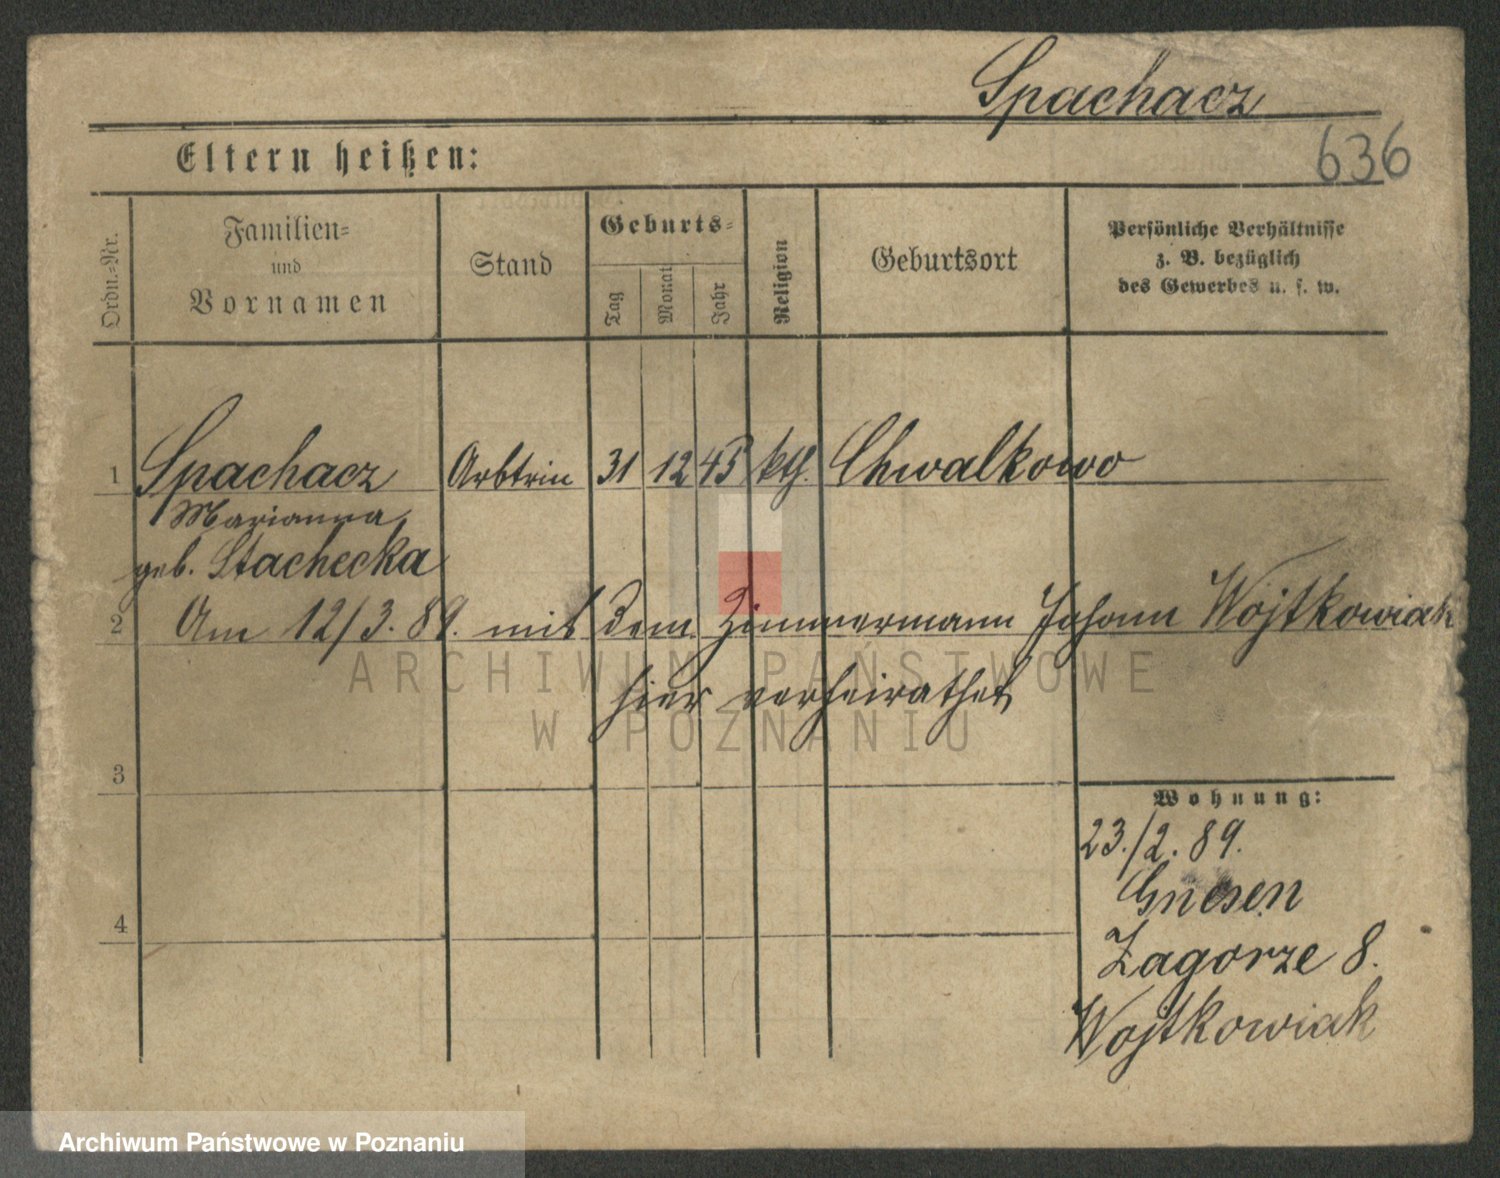 Spachacz
636
Eltern heißen:
Ordn.-Nr.
Familien-
und
Vornamen
Stand
Geburts-
Tag
Monat
Jahr
Religion
Geburtsort
Persönliche Verhältnisse
z. B. bezüglich
des Gewerbes u. s. w.
1 Spachacz Arbtrin 31 12 45 kth. Chwalkowo
Marianna,
geb. Stachecka
2 Am 12/3. 89. mit dem Zimmermann Johann Wojtkowiak
hier verheirathet
3
Wohnung:
23./2. 89.
Gnesen
4
Zagorze 8.
Wojtkowiak
ARCHIWUM PAŃSTWOWE
W POZNANIU
Archiwum Państwowe w Poznaniu